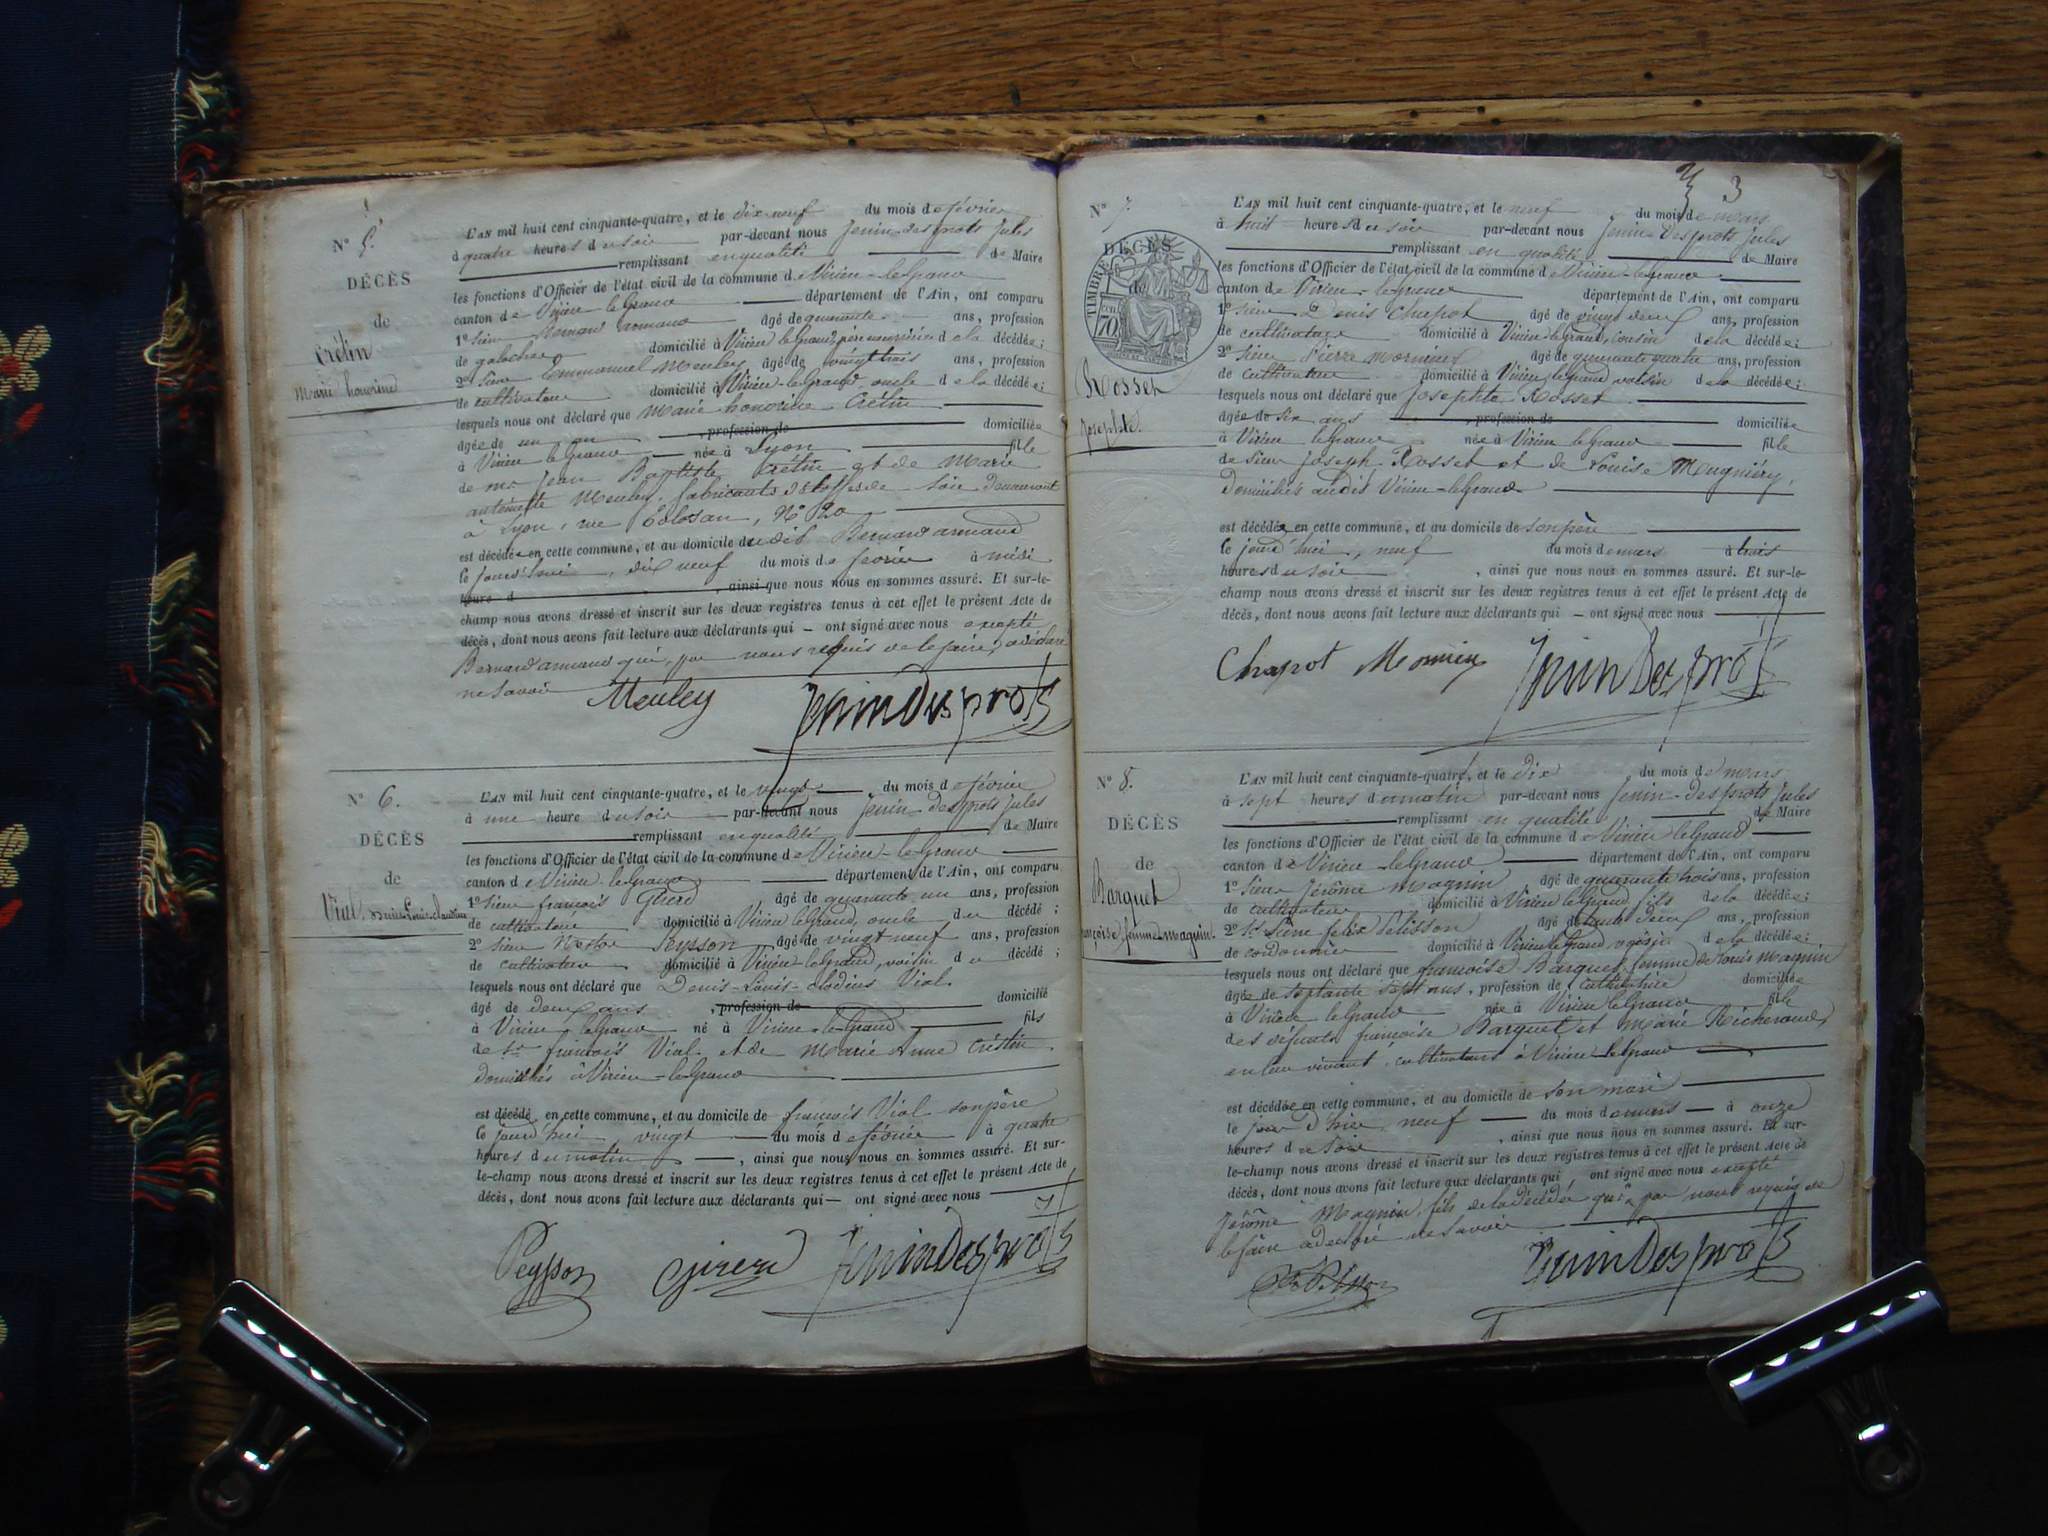 N° 5.
DÉCÈS
de
Crétin
Marie honorine
L'AN mil huit cent cinquante-quatre, et le dix-neuf du mois de février
à quatre heures du soir par-devant nous Jenin-Desprots Jules
remplissant en qualité de Maire
les fonctions d'Officier de l'état civil de la commune de Virieu-le-Grand
canton de Virieu le Grand département de l'Ain, ont comparu
1° Sieur Bernard Armand âgé de quarante ans, profession
de galocher domicilié à Virieu le Grand, père nourricier de la décédée ;
2° Sieur Emmanuel Meuley âgé de vingt trois ans, profession
de cultivateur domicilié à Virieu-le-Grand, oncle de la décédée ;
lesquels nous ont déclaré que Marie-honorine Crétin
âgée de un an , profession de domiciliée
à Virieu le Grand née à Lyon fille
de mr Jean Baptiste Crétin et de Marie
antoinette Meuley, fabricants d'étoffes de soie demeurant
à Lyon, rue Tolosan, N° 20
est décédée en cette commune, et au domicile dudit Bernard armand
le jourd'hui, dix neuf du mois de février à midi
heure d , ainsi que nous nous en sommes assuré. Et sur-le-
champ nous avons dressé et inscrit sur les deux registres tenus à cet effet le présent Acte de
décès, dont nous avons fait lecture aux déclarants qui – ont signé avec nous excepté
Bernard armand qui, par nous requis de le faire, a déclaré
ne savoir
Meuley JeninDesprots
N° 6.
DÉCÈS
de
Vial Denis-Louis-claudius
L'AN mil huit cent cinquante-quatre, et le vingt du mois de février
à une heure du soir par-devant nous Jenin-Desprots Jules
remplissant en qualité de Maire
les fonctions d'Officier de l'état civil de la commune de Virieu-le-Grand
canton de Virieu-le-Grand département de l'Ain, ont comparu
1° Sieur françois Girerd âgé de quarante un ans, profession
de cultivateur domicilié à Virieu le Grand, oncle du décédé ;
2° Sieur Nestor Peysson âgé de vingt neuf ans, profession
de cultivateur domicilié à Virieu le Grand, voisin du décédé ;
lesquels nous ont déclaré que Denis-Louis-cladius Vial
âgé de deux ans , profession de domicilié
à Virieu le Grand né à Virieu-le-Grand fils
de Sr françois Vial et de Marie Anne Créstin
domiciliés à Virieu-le-Grand
est décédé en cette commune, et au domicile de françois Vial son père
le jourd'hui, vingt du mois de février à quatre
heures du matin , ainsi que nous nous en sommes assuré. Et sur-
le-champ nous avons dressé et inscrit sur les deux registres tenus à cet effet le présent Acte de
décès, dont nous avons fait lecture aux déclarants qui – ont signé avec nous
Peysson Girerd JeninDesprots
3
N° 7.
DÉCÈS
de
TIMBRE
70
Rosset
Josephte.
L'AN mil huit cent cinquante-quatre, et le neuf du mois de mars
à huit heures du soir par-devant nous Jenin Desprots Jules
remplissant en qualité de Maire
les fonctions d'Officier de l'état civil de la commune de Virieu-le-Grand
canton de Virieu-le-Grand département de l'Ain, ont comparu
1° Sieur Denis Chapot âgé de vingt deux ans, profession
de cultivateur domicilié à Virieu le Grand, cousin de la décédée ;
2° Sieur Pierre Mornieux âgé de quarante quatre ans, profession
de cultivateur domicilié à Virieu le Grand voisin de la décédée ;
lesquels nous ont déclaré que Josephte Rosset
âgée de six ans , profession de domiciliée
à Virieu le Grand née à Virieu le Grand fille
de Sieur Joseph Rosset et de Louise Mugniéry,
Domiciliés audit Virieu-le-Grand
est décédée en cette commune, et au domicile de son père
le jourd'hui, neuf du mois de mars à trois
heures du soir , ainsi que nous nous en sommes assuré. Et sur-le-
champ nous avons dressé et inscrit sur les deux registres tenus à cet effet le présent Acte de
décès, dont nous avons fait lecture aux déclarants qui – ont signé avec nous
Chapot JeninDesprots
N° 8.
DÉCÈS
de
Barquet
françoise femme magnin.
L'AN mil huit cent cinquante-quatre, et le dix du mois de mars
à sept heures du matin par-devant nous Jenin-Desprots Jules
remplissant en qualité de Maire
les fonctions d'Officier de l'état civil de la commune de Virieu le Grand
canton de Virieu-le-Grand département de l'Ain, ont comparu
1° Sieur Jérôme Magnin âgé de quarante trois ans, profession
de cultivateur domicilié à Virieu le Grand, fils de la décédée ;
2° Sieur felix Pelisson âgé de trente deux ans, profession
de cordonnier domicilié à Virieu le Grand, voisin de la décédée ;
lesquels nous ont déclaré que françoise Barquet femme de Louis Magnin
âgée de septante sept ans, profession de cultivatrice domiciliée
à Virieu le Grand née à Virieu le Grand fille
des défunts françoise Barquet et Marie Richerand,
en leur vivant cultivateurs à Virieu le Grand
est décédée en cette commune, et au domicile de son mari
le jour d'hier neuf du mois de mars à onze
heures du soir , ainsi que nous nous en sommes assuré. Et sur-
le-champ nous avons dressé et inscrit sur les deux registres tenus à cet effet le présent Acte de
décès, dont nous avons fait lecture aux déclarants qui ont signé avec nous excepté
Jérôme Magnin, fils de la décédée qui, par nous requis de
le faire a déclaré ne savoir
JeninDesprots